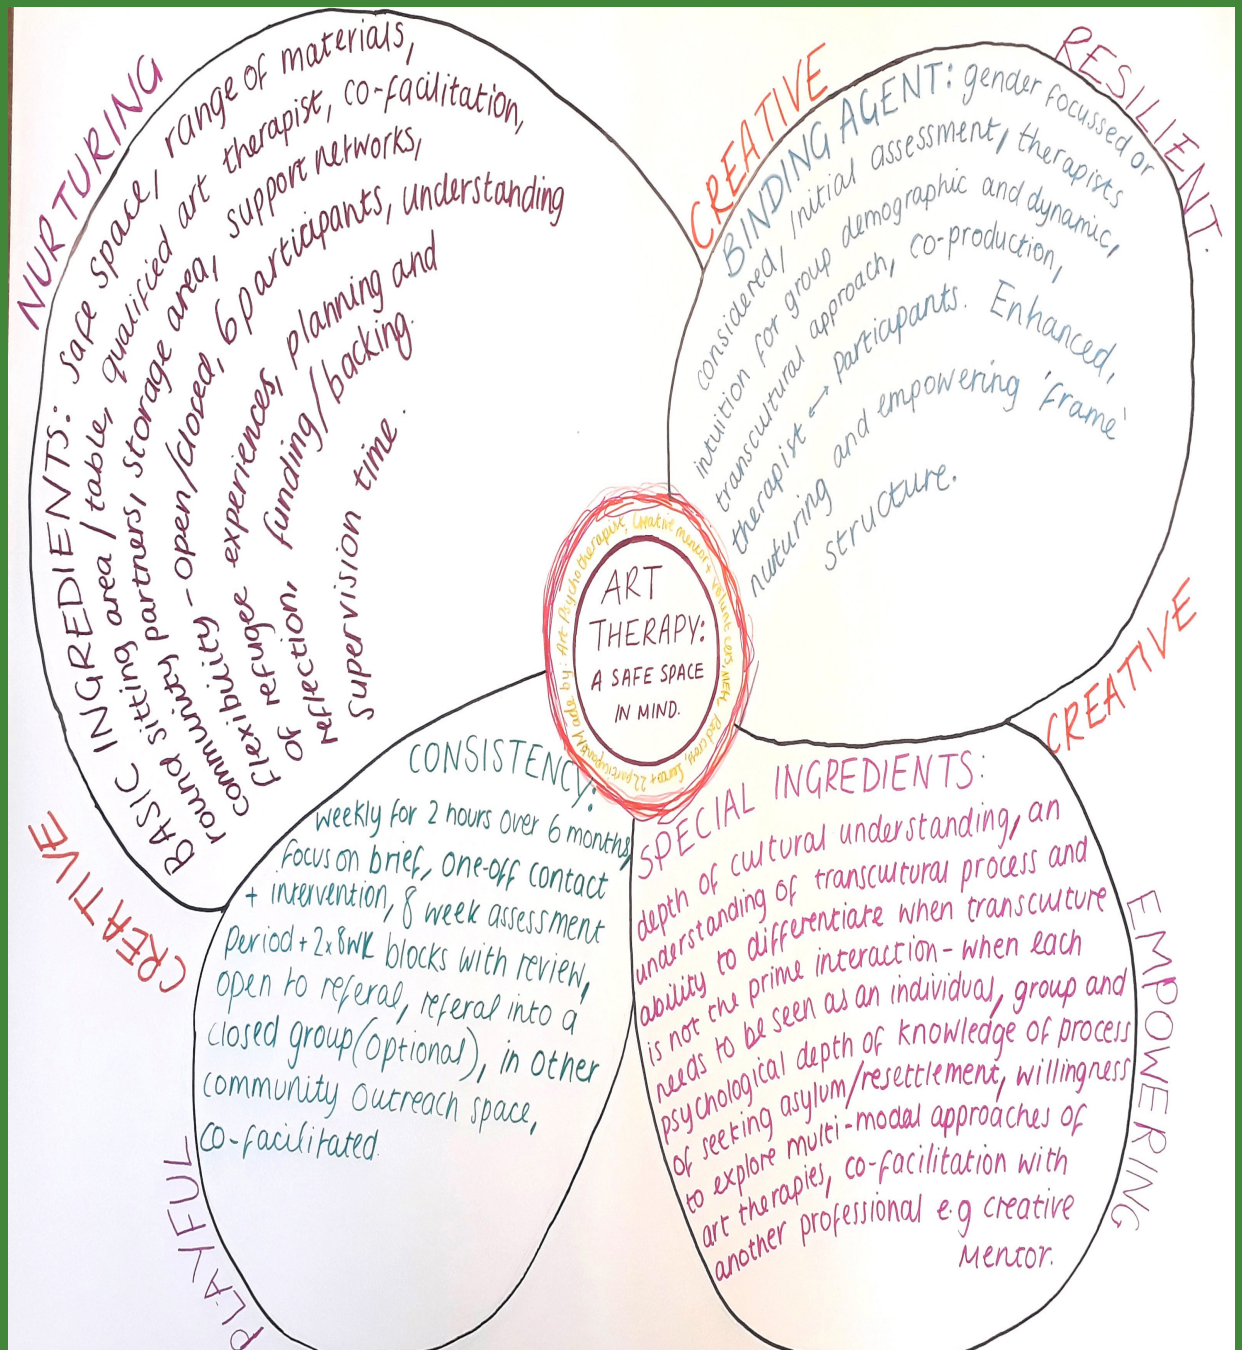 NURTURING
BASIC INGREDIENTS: safe space, range of materials,
round sitting area/table, qualified art therapist, co-facilitation,
community partners, storage area, support networks,
flexibility - open/closed, 6 participants, understanding
of refugee experiences, planning and
reflection, funding/backing.
Supervision time.
CREATIVE
RESILIENT.
BINDING AGENT: gender focussed or
considered, Initial assessment, therapists
intuition for group demographic and dynamic,
transcultural approach, co-production,
therapist ↔ participants. Enhanced,
nuturing and empowering 'frame'
structure.
ART
THERAPY:
A SAFE SPACE
IN MIND.
Made by: Art Psychotherapist, Creative mentor + volunteers, NELFT, Red cross, 22 participants
CREATIVE
CREATIVE
CONSISTENCY:
weekly for 2 hours over 6 months,
focus on brief, one-off contact
+ intervention, 8 week assessment
period + 2x8wk blocks with review,
open to referal, referal into a
closed group (optional), in other
community outreach space,
co-facilitated.
PLAYFUL
SPECIAL INGREDIENTS:
depth of cultural understanding, an
understanding of transcultural process and
ability to differentiate when transculture
is not the prime interaction - when each
needs to be seen as an individual, group and
psychological depth of knowledge of process
of seeking asylum/resettlement, willingness
to explore multi-modal approaches of
art therapies, co-facilitation with
another professional e.g creative
Mentor.
EMPOWERING